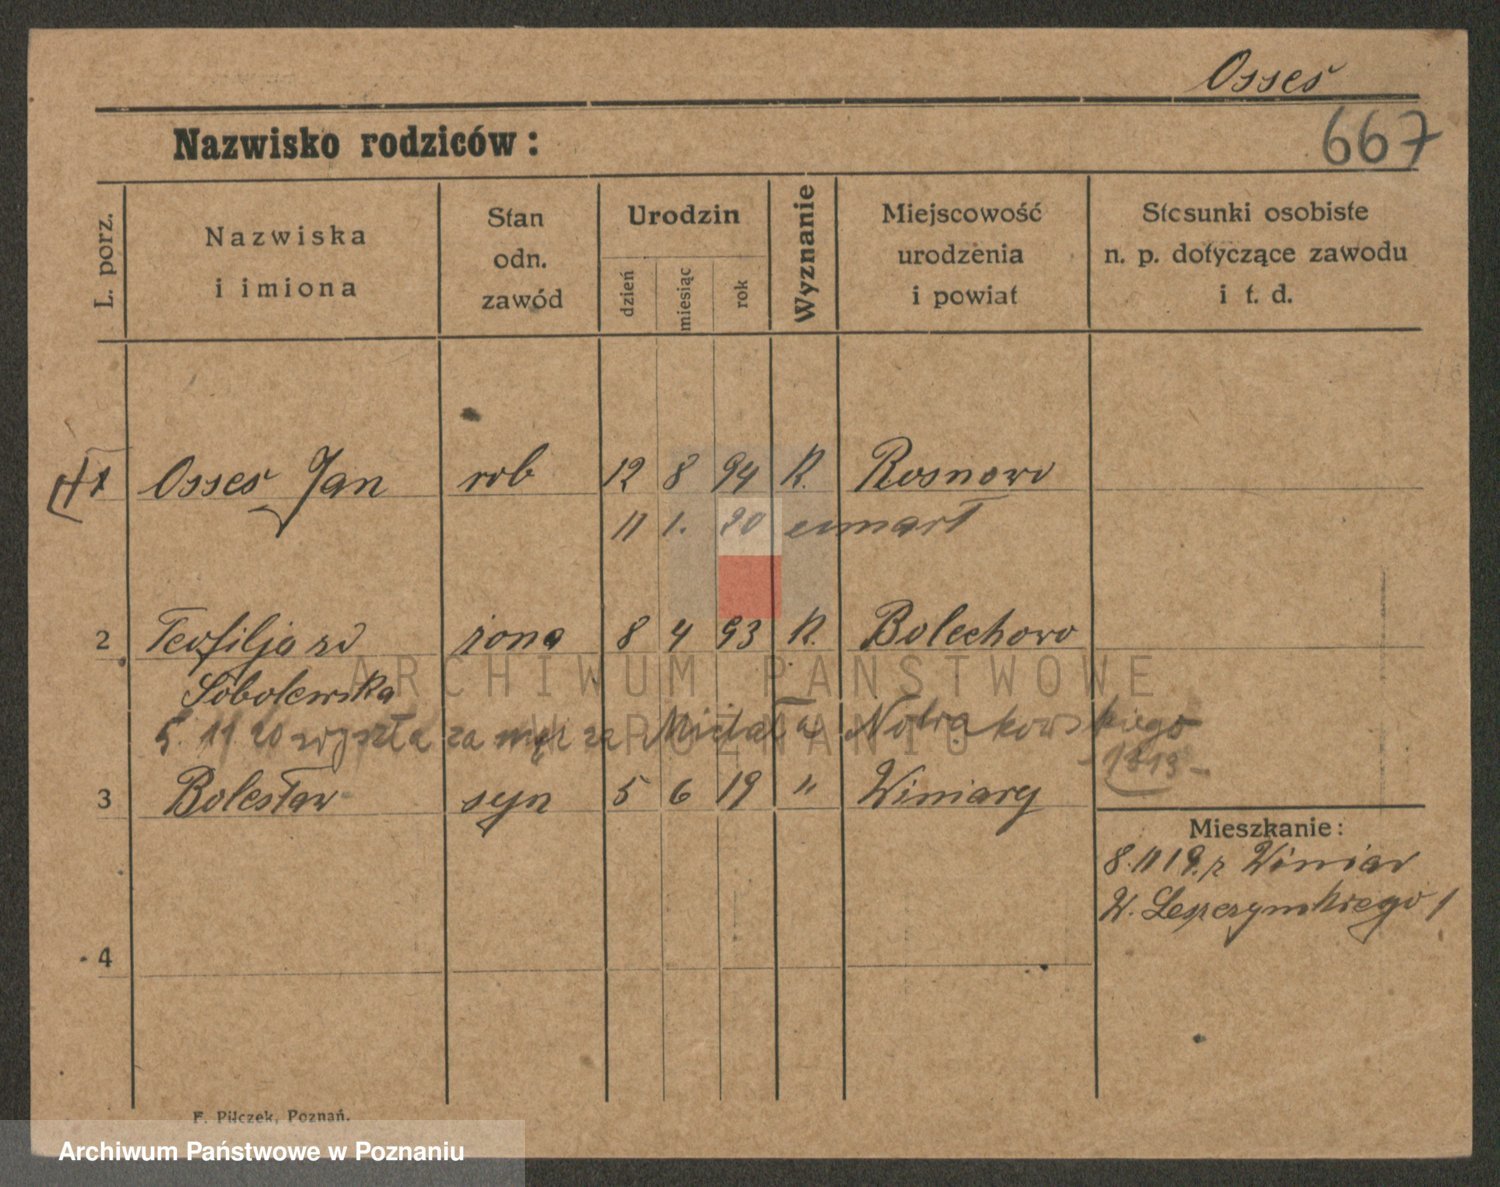 Osses
Nazwisko rodziców:
667
L. porz.
Nazwiska
i imiona
Stan
odn.
zawód
Urodzin
dzień
miesiąc
rok
Wyznanie
Miejscowość
urodzenia
i powiat
Stosunki osobiste
n. p. dotyczące zawodu
i t. d.
1 Osses Jan rob 12 8 94 K. Rosnowo
11 1. 20 umarł
2 Teofilja zd żona 8 4 93 K. Bolechowo
Sobolewska
ARCHIWUM PAŃSTWOWE
W POZNANIU
5. 11 20 wyszła za mąż za Michała Nowakowskiego
-1819-
3 Bolesław syn 5 6 19 " Winiary
Mieszkanie:
8. 11 19. z Winiar
W. Leszczyńskiego 1
4
F. Pilczek, Poznań.
Archiwum Państwowe w Poznaniu